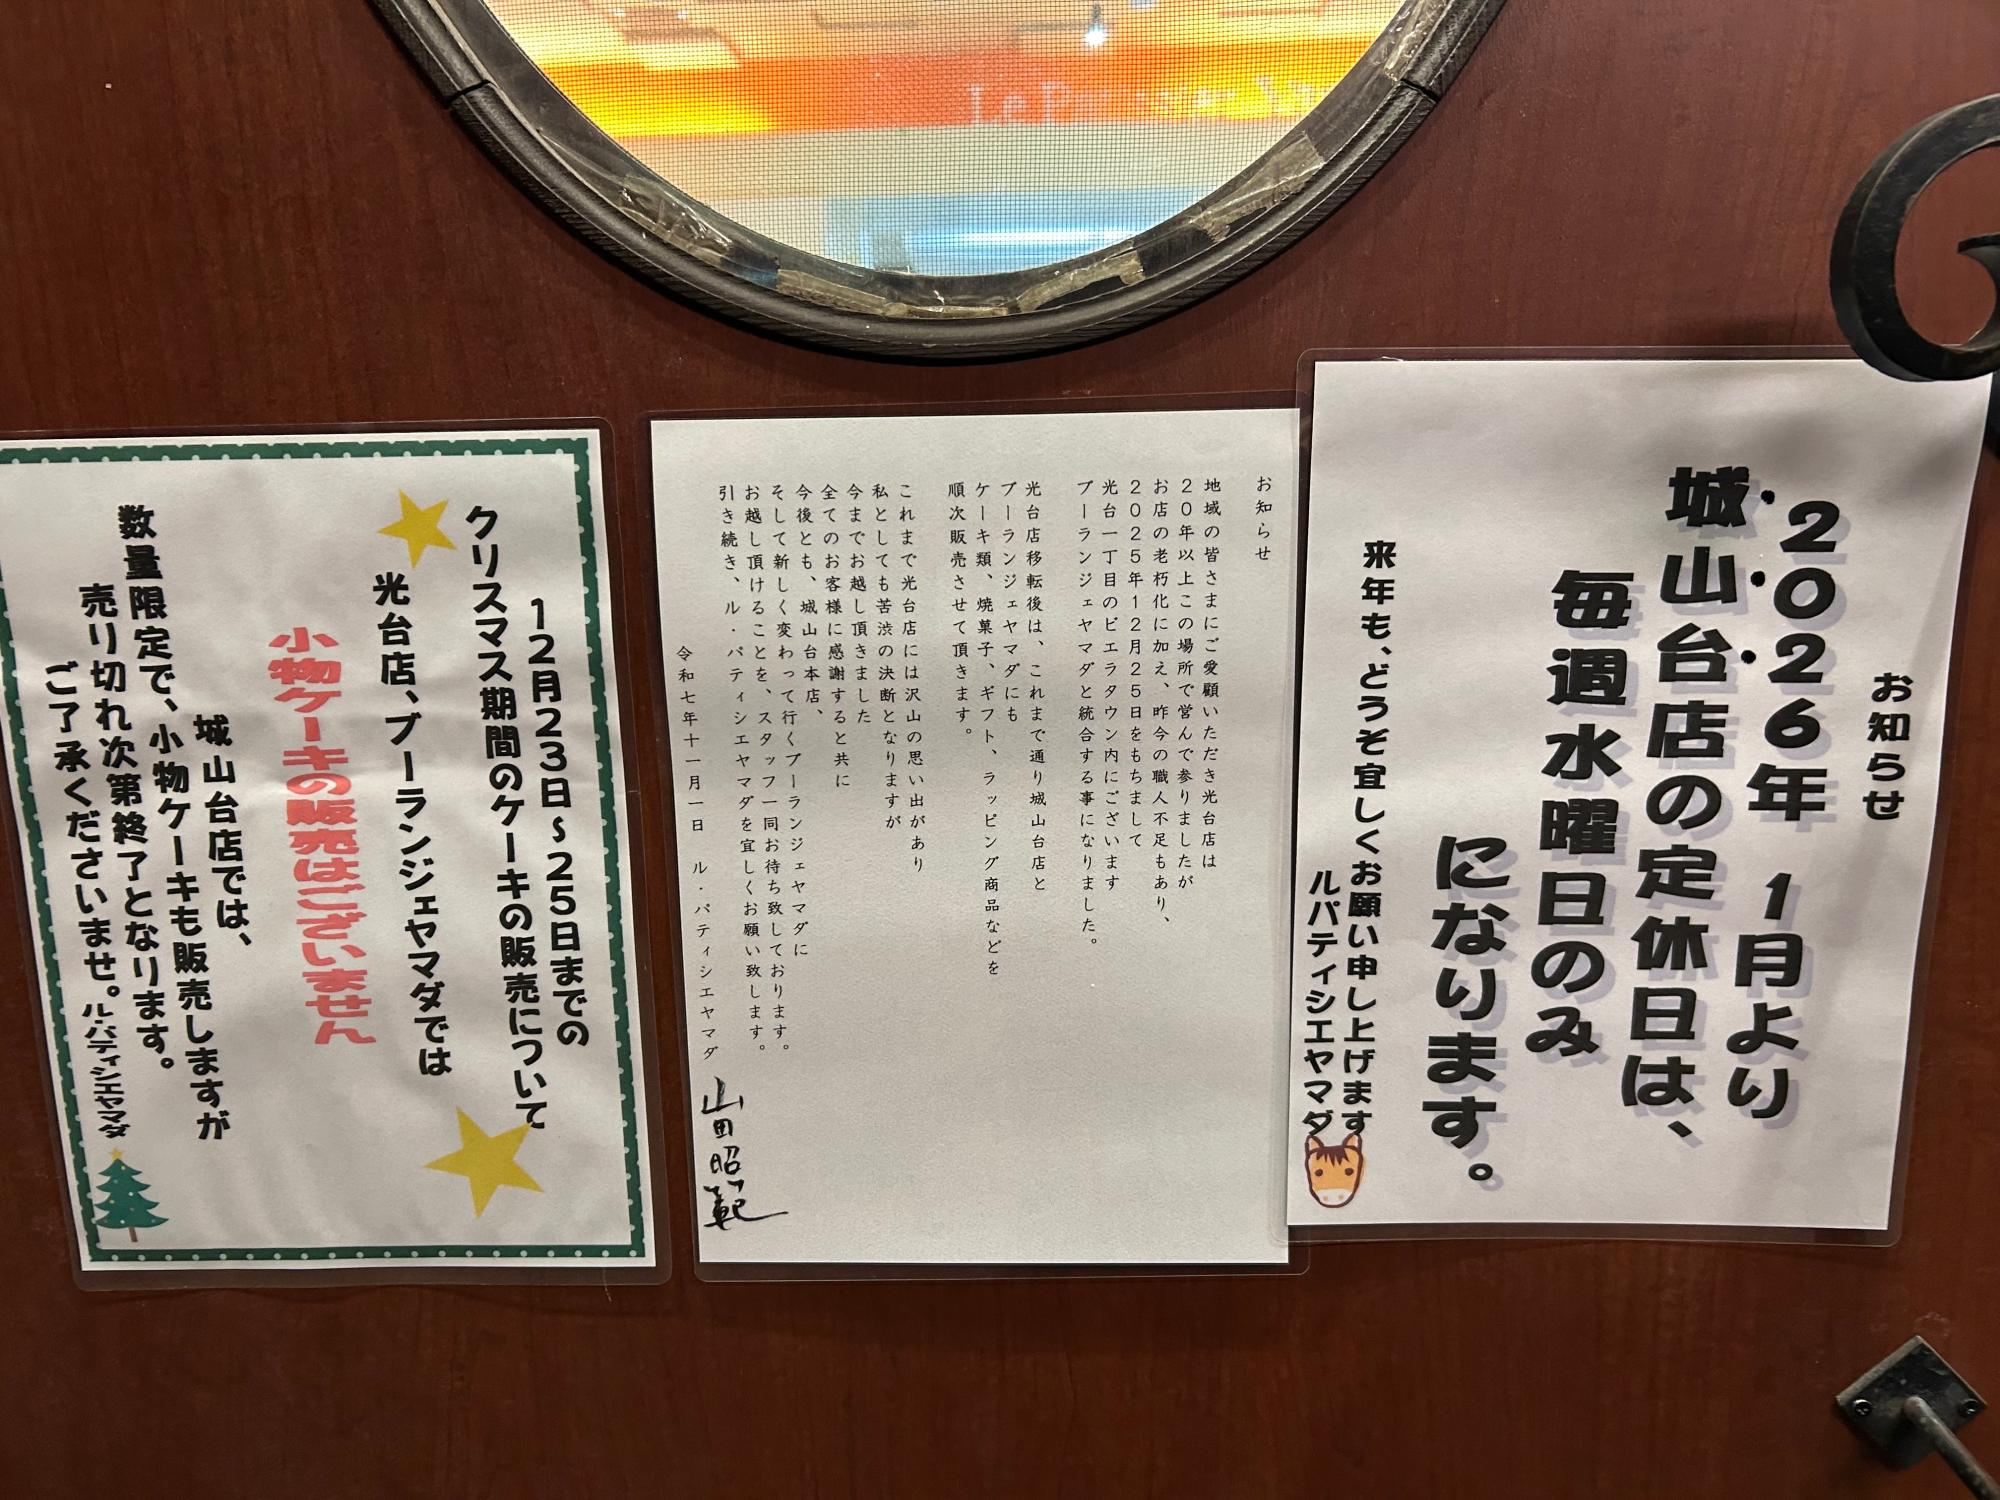 Le P
お知らせ
2026年 1月より
城山台店の定休日は、
毎週水曜日のみ
になります。
来年も、どうぞ宜しくお願い申し上げます
ルパティシエヤマダ
お知らせ
地域の皆さまにご愛顧いただき光台店は
20年以上この場所で営んで参りましたが
お店の老朽化に加え、昨今の職人不足もあり、
2025年12月25日をもちまして
光台一丁目のビエラタウン内にございます
ブーランジェヤマダと統合する事になりました。
光台店移転後は、これまで通り城山台店と
ブーランジェヤマダにも
ケーキ類、焼菓子、ギフト、ラッピング商品などを
順次販売させて頂きます。
これまで光台店には沢山の思い出があり
私としても苦渋の決断となりますが
今までお越し頂きました
全てのお客様に感謝すると共に
今後とも、城山台本店、
そして新しく変わって行くブーランジェヤマダに
お越し頂けることを、スタッフ一同お待ち致しております。
引き続き、ル・パティシエヤマダを宜しくお願い致します。
令和七年十一月一日 ル・パティシエヤマダ
山田昭範
12月23日~25日までの
クリスマス期間のケーキの販売について
光台店、ブーランジェヤマダでは
小物ケーキの販売はございません
城山台店では、
数量限定で、小物ケーキも販売しますが
売り切れ次第終了となります。
ご了承くださいませ。ル・パティシエヤマダ